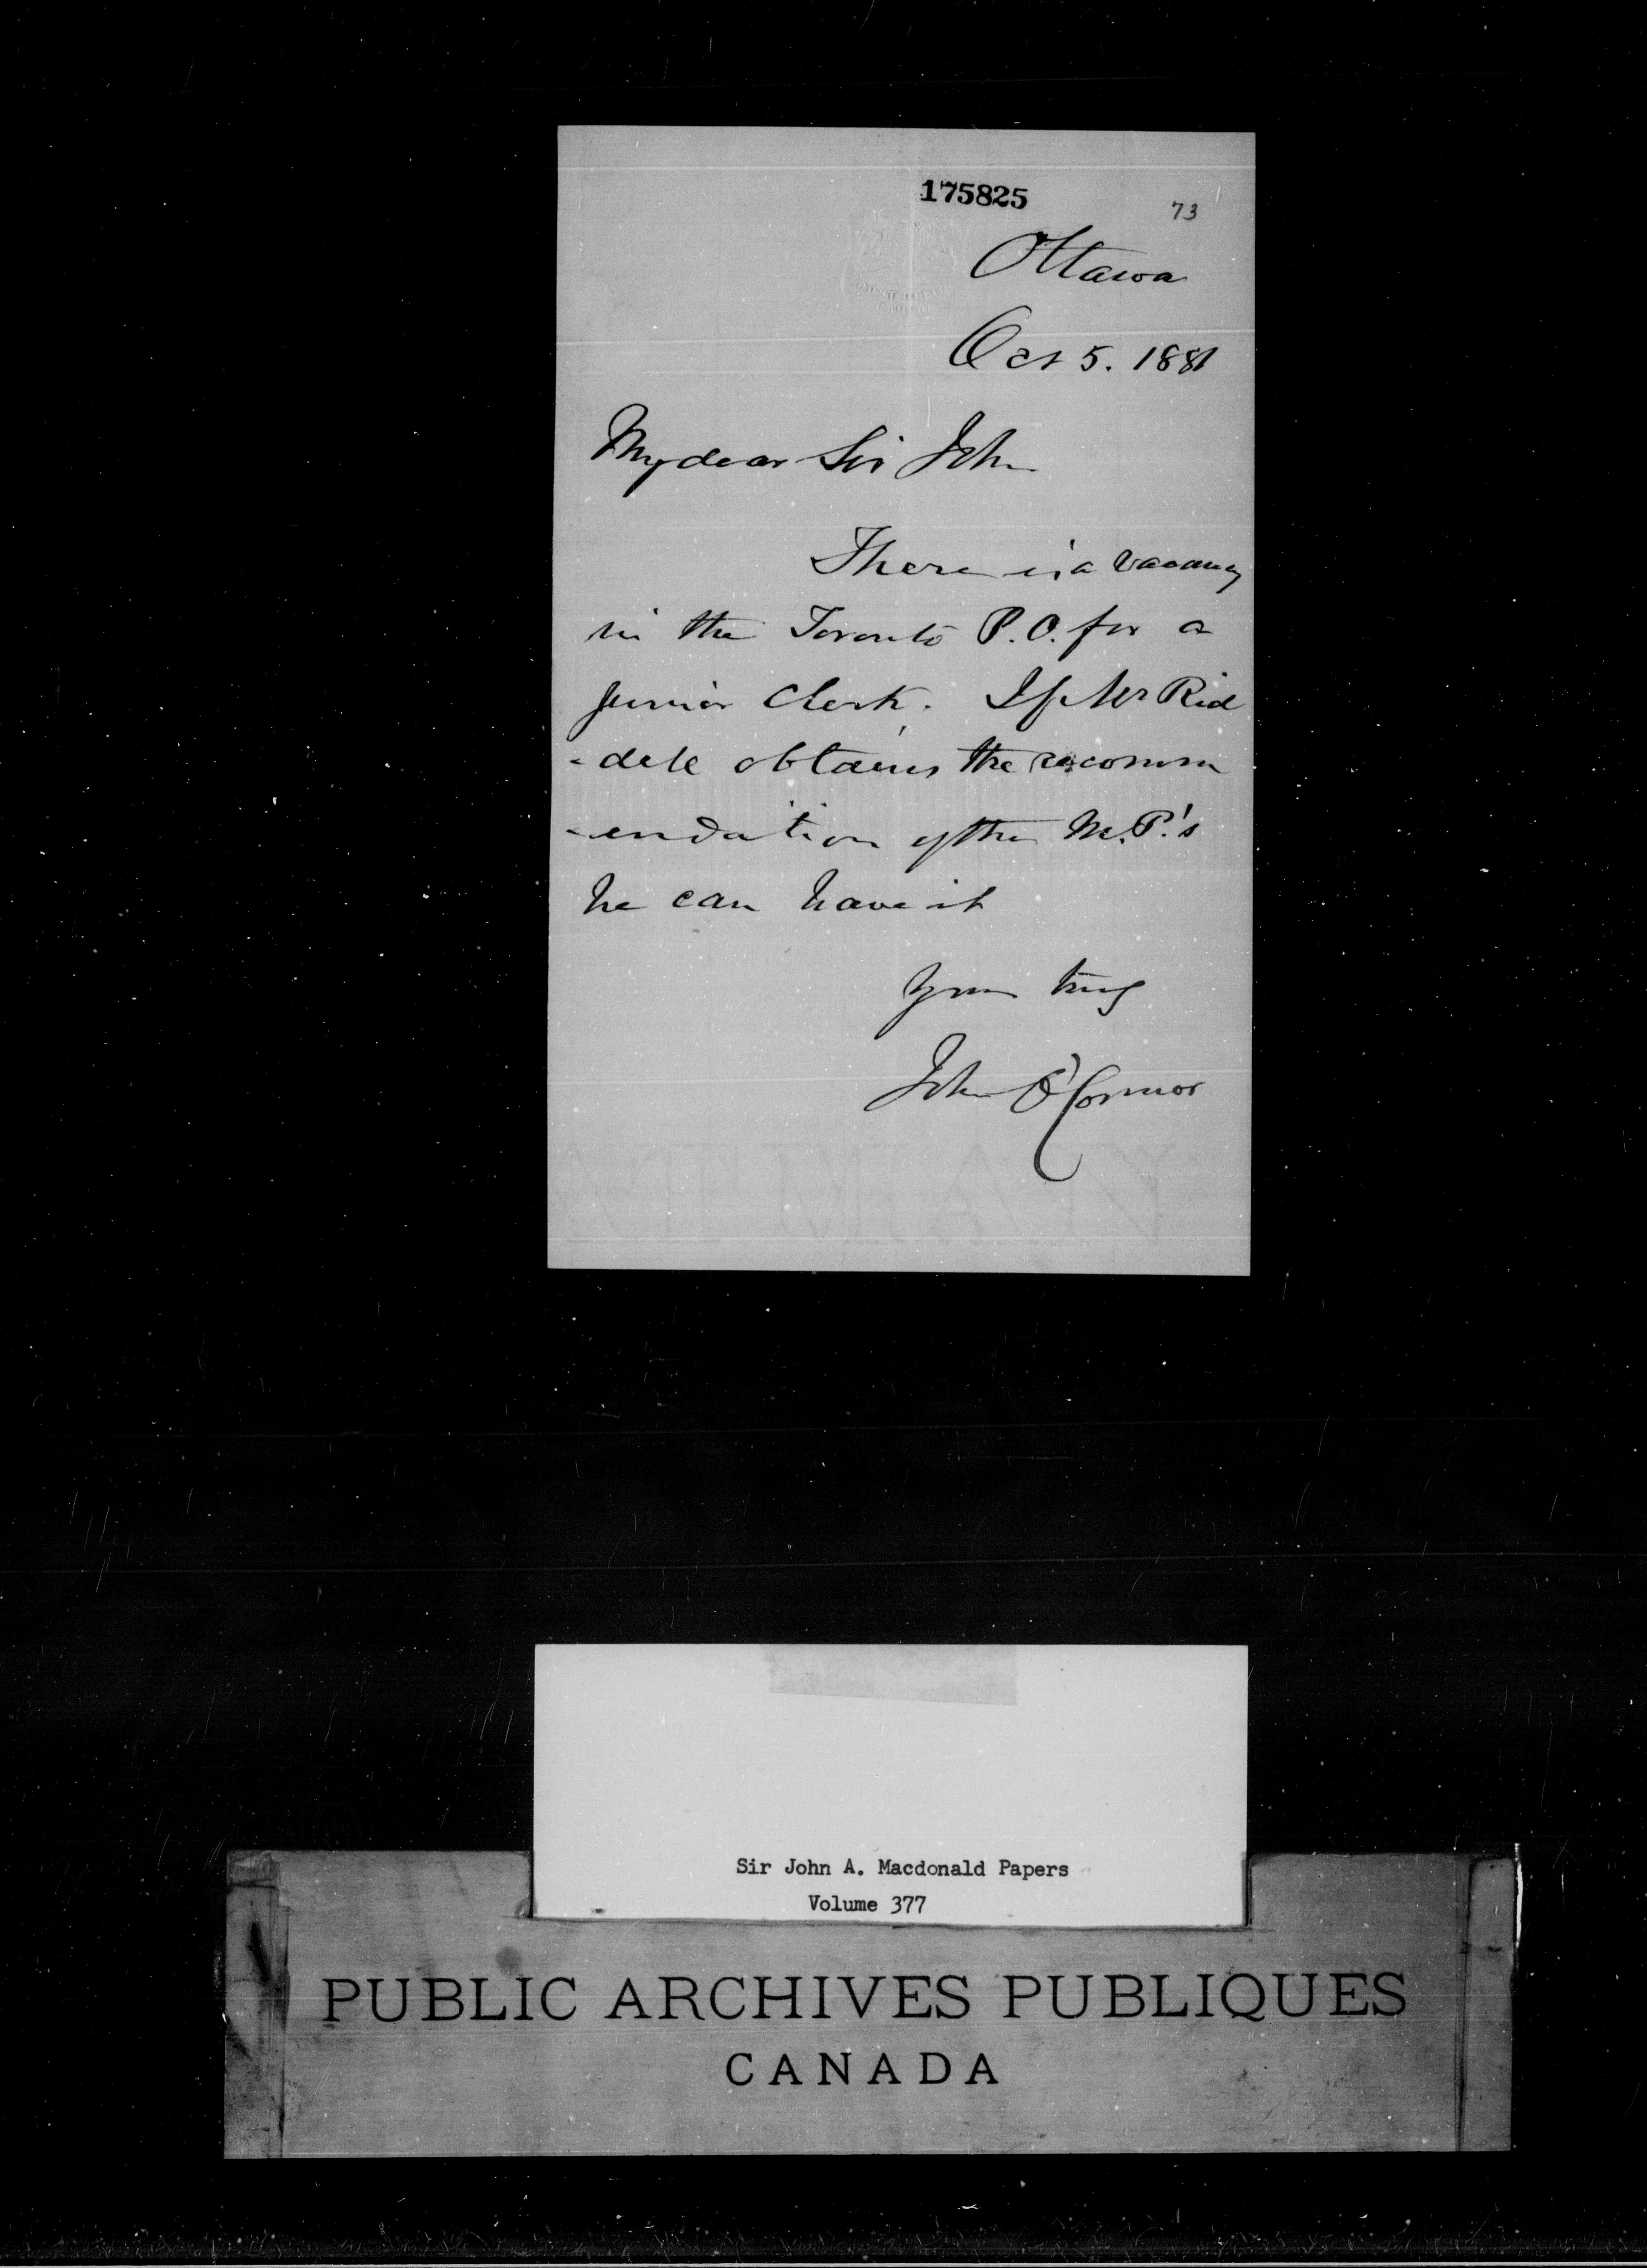 175825
73
Ottawa
Oct 5. 1881
My dear Sir John
There is a vacancy
in the Toronto P.O. for a
junior Clerk. If Mr Rid
-dell obtains the recomm
-endation of the M.P.'s
he can have it
Yours truly
John O'Connor
Sir John A. Macdonald Papers
Volume 377
PUBLIC ARCHIVES PUBLIQUES
CANADA